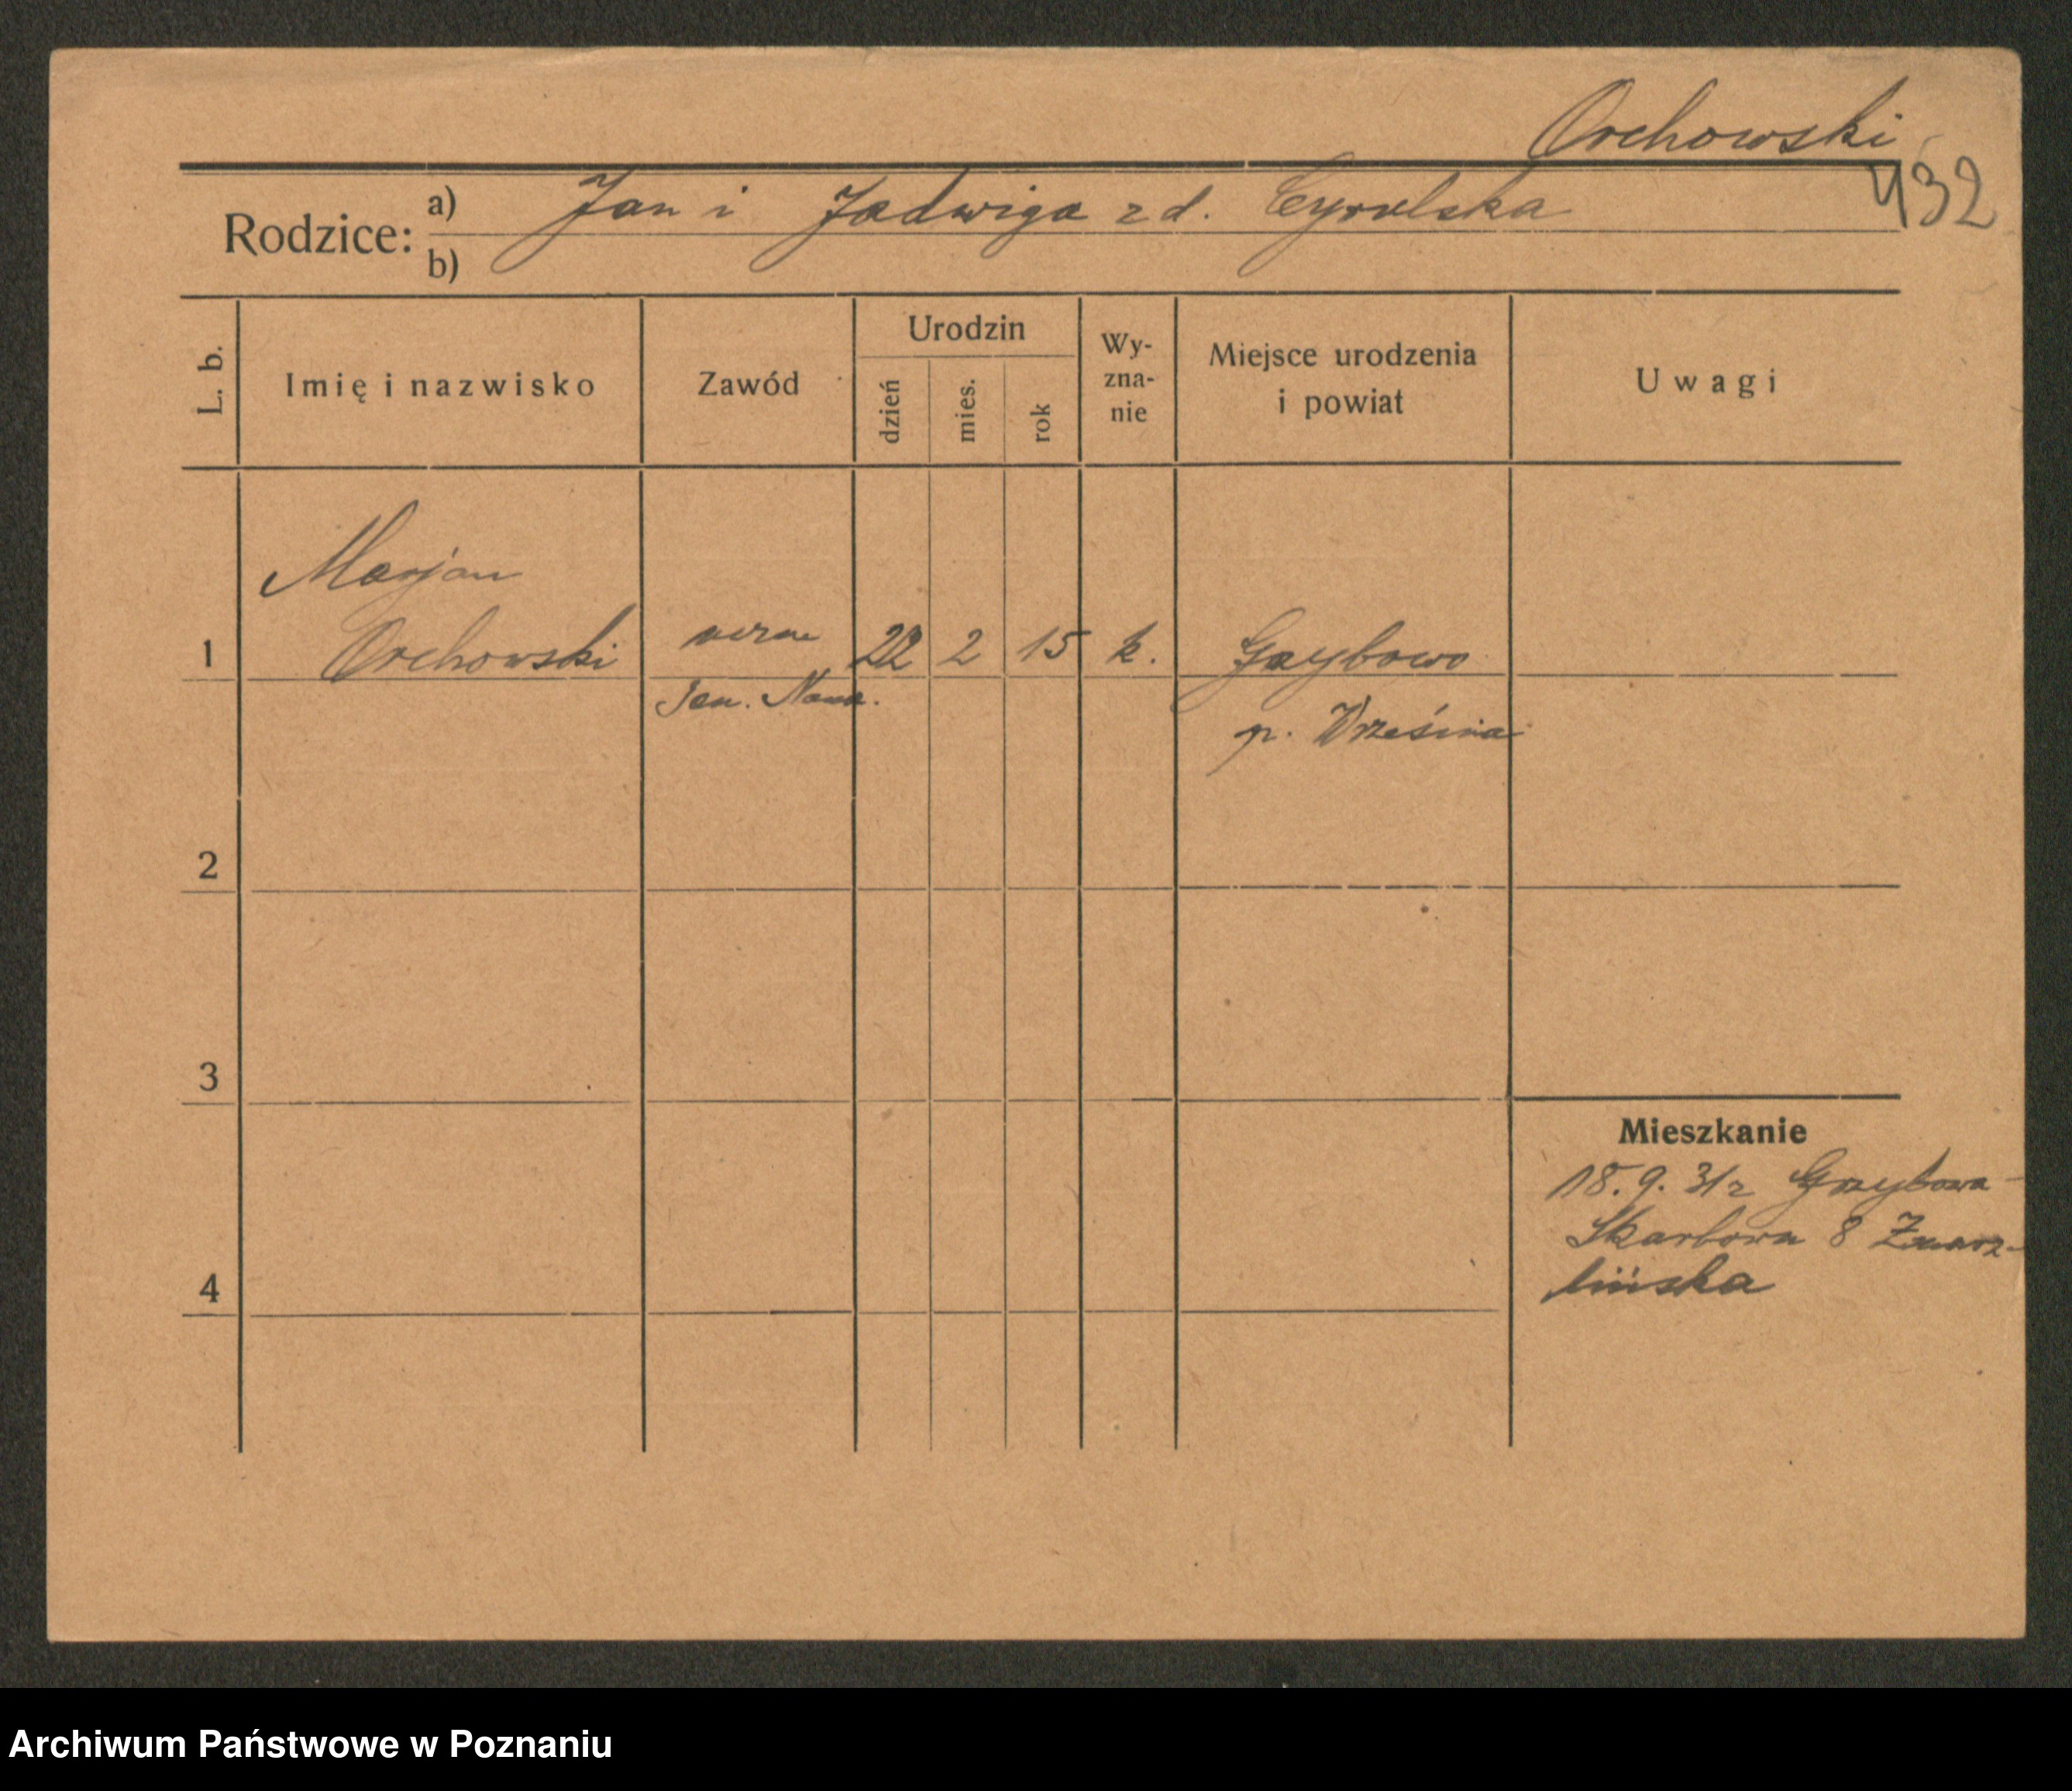 Orchowski
432
Rodzice: a) Jan i Jadwiga z d. Cyrulska
b)
L. b. Imię i nazwisko Zawód Urodzin dzień mies. rok Wy-zna-nie Miejsce urodzenia i powiat Uwagi
Marjan
1 Orchowski uczn 22 2 15 k. Grzybowo
Sem. Naucz. p. Września
2
3
Mieszkanie
18.9.31 z Grzybowa
Skarbowa 8
4
Archiwum Państwowe w Poznaniu